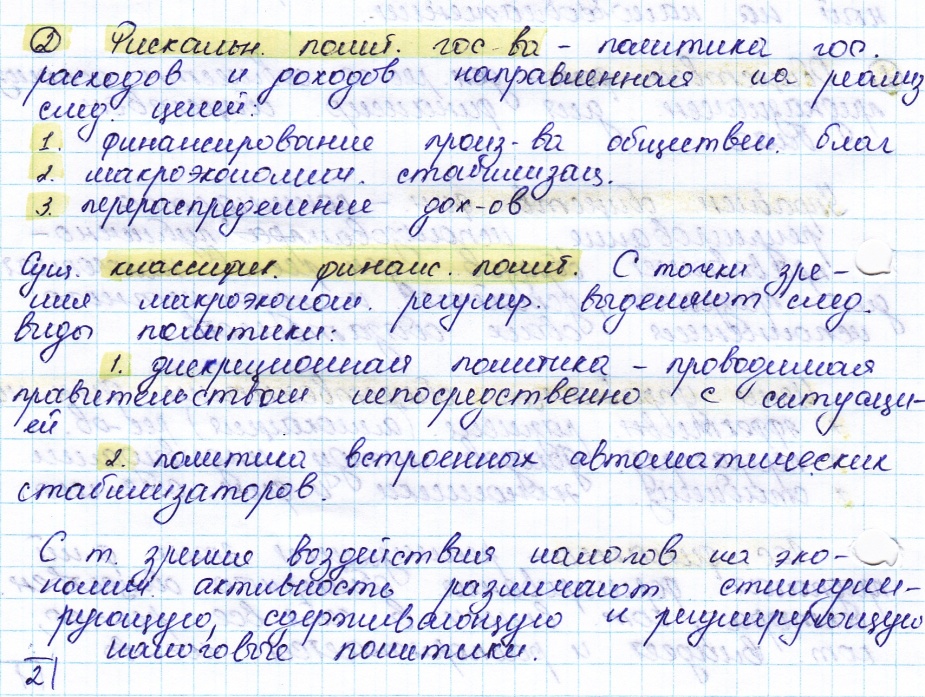 ② Фискальн. полит. гос-ва – политика гос.
расходов и доходов направленная на реализ
след. целей:
1. финансирование произ-ва обществен. благ
2. макроэкономич. стабилизац.
3. перераспределение дох-ов
Сущ. классифик. финанс. полит. С точки зре-
ния макроэконом. регулир. выделяют след.
виды политики:
1. дискреционная политика – проводимая
правительством непосредственно с ситуаци-
ей
2. политика встроенных автоматических
стабилизаторов.
С т. зрения воздействия налогов на эко-
номич активность различают стимули-
рующую, сдерживающую и регулирующую
налоговые политики.
2